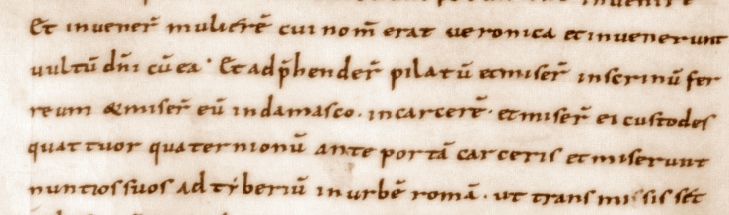 Et inveneꝛ̄ muliérē cui nom̄ erat veronica et invenerunt
vultū dn̄i cū ea. Et adp̄hendeꝛ̄ pilatū et miseꝛ̄ inscrinū fer
reum & miseꝛ̄ eū in damasco. in carcerē. et miseꝛ̄ ei custodes
quattuor quaternionū ante portā carceris et miserunt
nuntios suos ad tyberiū in urbē romā. ut transmissis sēt